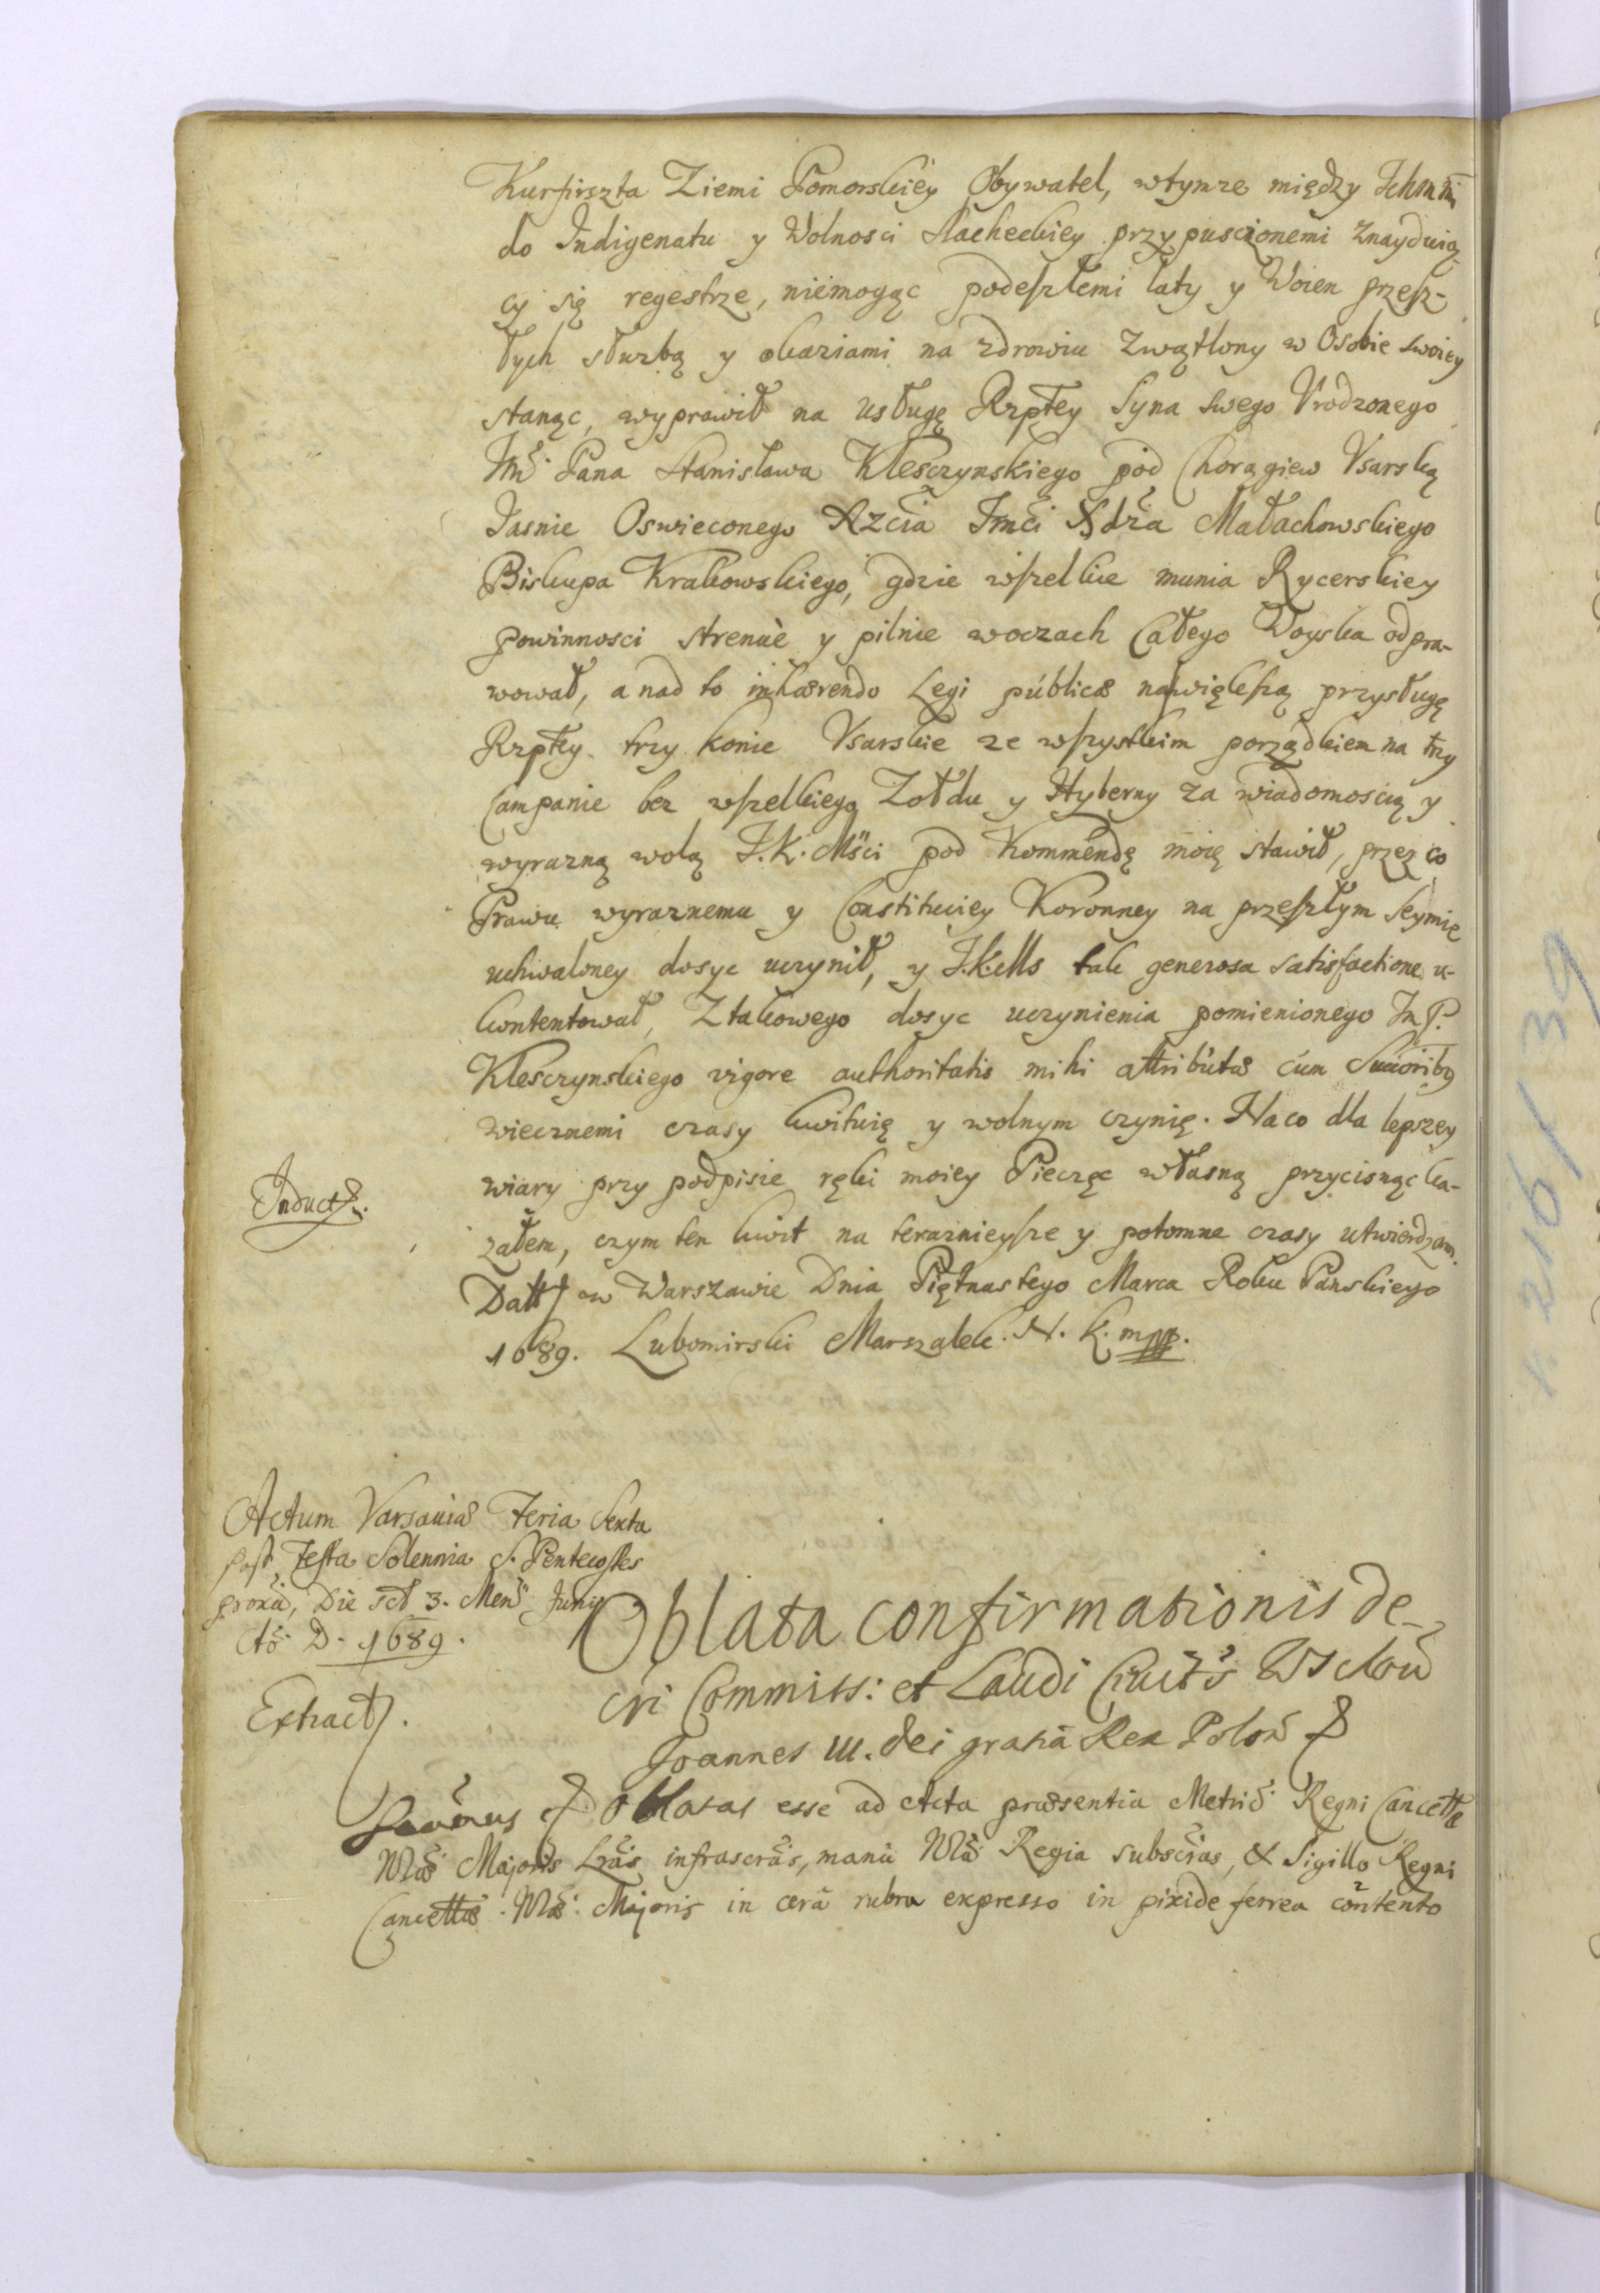 Kurfirszta Ziemi Pomorskiey Obywatel, wtymze między Ichmm
do Indigenatu y Wolnosci slacheckiey przypuscionemi znayduią
cy się regestrze, niemogąc podeszłemi laty y Woien przesz-
łych służbą y okaziami na zdrowiu zwątlony w Osobie swoiey
stanąc, wyprawił na usługę Rzptey Syna swego Vrodzonego
Jmć Pana Stanisława Klesczynskiego pod Chorągiew Vsarską
Jasnie Oswieconego Xzcia Jmci Xdza Małachowskiego
Biskupa Krakowskiego, gdzie wszelkie munia Rycerskiey
powinnosci strenuè y pilnie woczach Całego Woyska odpra-
wował, a nad to inhærendo Legi públicæ największą przysługę
Rzptey trzy konie Vsarskie ze wszystkim porządkiem na trzy
Campanie bez wszelkiego Zołdu y Hyberny za wiadomoscią y
wyrazną wolą J.K.Mści pod Kommendę moię stawił, przez co
Prawu wyraznemu y Constituciey Koronney na przeszłym Seymie
uchwaloney dosyc uczynił, y J.K.Ms tak generosa satisfactione u-
kontentował, Ztakowego dosyc uczynienia pomienionego Jm P.
Klesczynskiego vigore authoritatis mihi attribútæ cúm Succoribq
wiecznemi czasy kwituię y wolnym czynię. Na co dla lepszey
wiary przy podpisie ręki moiey Pieczęc własną przycisnąc ka-
załem, czym ten kwit na teraznieysze y potomne czasy utwierdzam.
Datt w Warszawie Dnia Piętnastego Marca Roku Panskiego
1689. Lubomirski Marszalek N. K. mpp.
Induct.
Actum Varsaviæ Feria Sexta
post Festa Solennia S. Pentecostes
proxa, Die sct 3. Mens Juny
Ao D. 1689.
Extract.
Oblata confirmationis de-
cri Commiss: et Laudi Cuitts Wschow
Joannes III. dei gratia Rex Polon
oblatas esse ad Acta præsentia Metric Regni Cancella
Nræ Majoris Lras infrascras, manu Nra Regia subscras, & Sigillo Regni
Cancellæ Næ: Majoris in cera rubra expresso in pixide ferrea contento